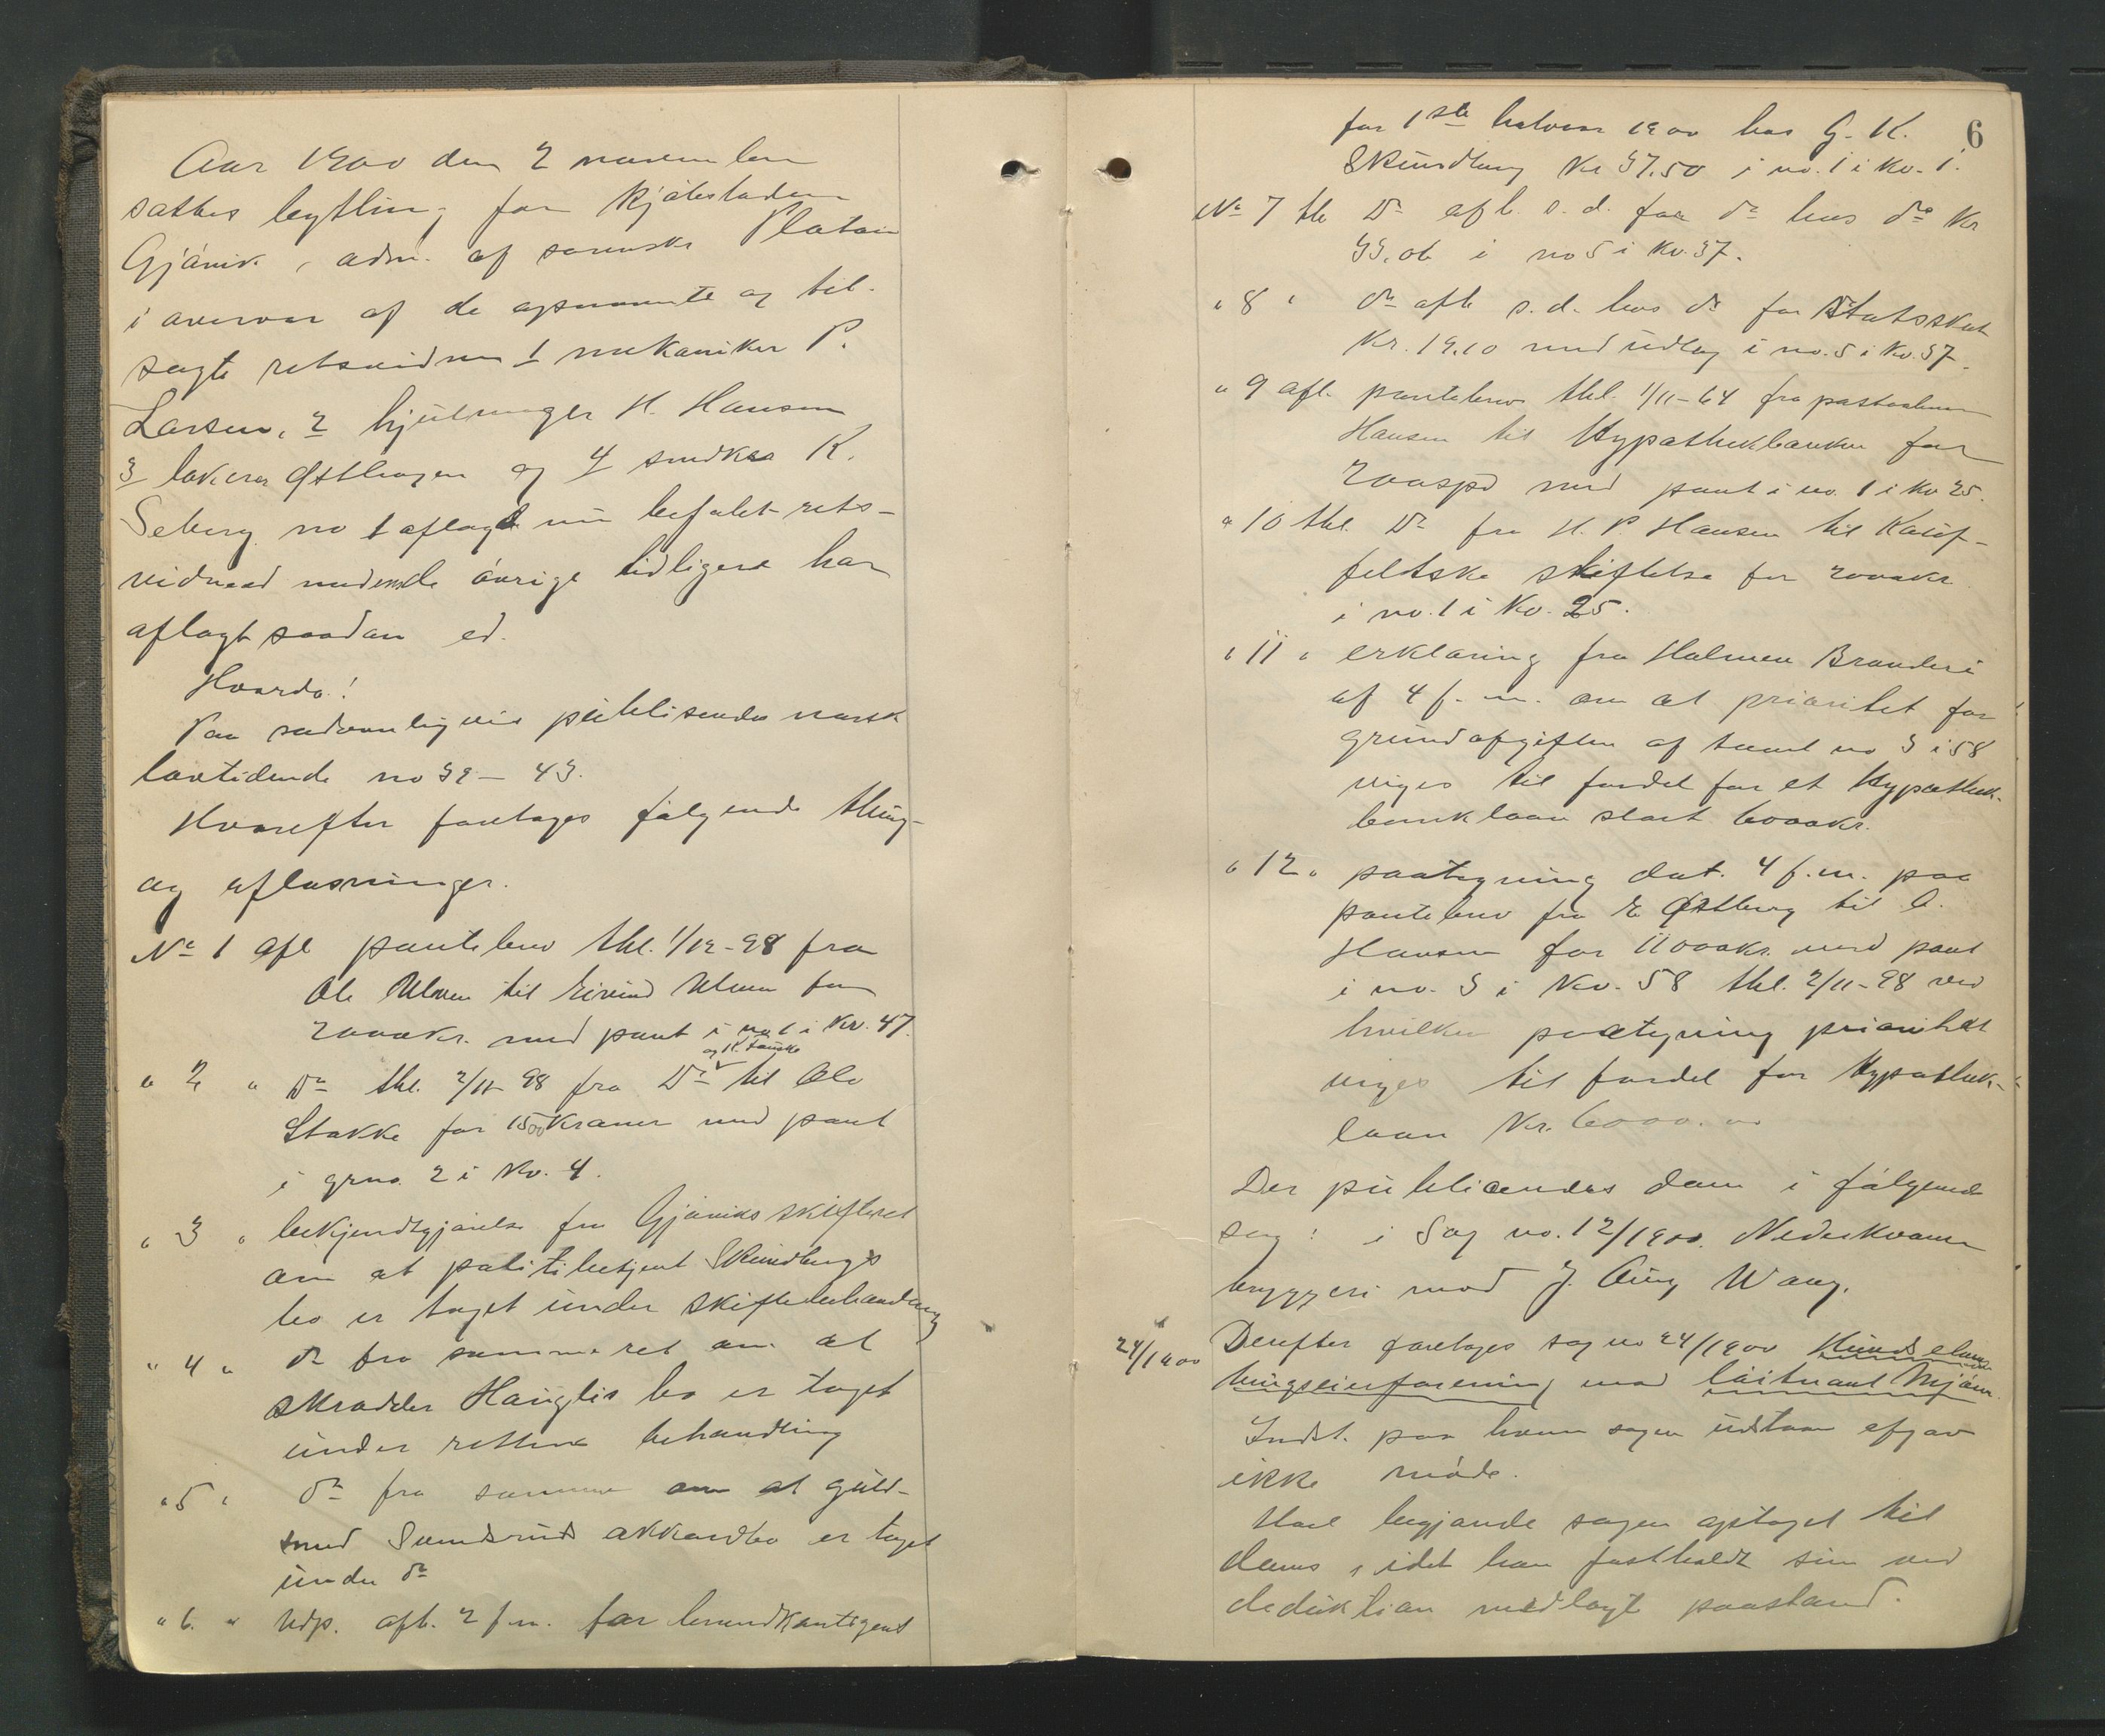 Aar 1900 den 2 november
sattes bything for kjøbstaden
Gjøvik, adm. af sorenskr Platou
i overvær af de opnævnte og til-
sagte retsvidner 1 mekaniker P.
Larsen, 2 hjulmager H. Hansen
3 lokerer Østhagen og 4 snedker K.
Seberg no 1 aflagde nu befalet rets-
vidneed medens de øvrige tidligere har
aflagt saadan ed.
Hvorda!
Paa sedvanlig vis publisertes norsk
lovtidende no 39 – 43.
Hvorefter foretoges følgende thing-
og aflæsninger.
No 1 afl pantebrev thl. 1/12-98 fra
Ole Ulven til Eivind Ulven for
2000kr. med pant i no 1 i Kv. 47.
og K. Fauske
" 2 " Do thl. 2/11-98 fra Do til Ole
Stokke for 1500 kroner med pant
i grno. 2 i Kv. 4.
" 3 " bekjendtgjørelse fra Gjøviks skifteret
om at politibetjent Skundbergs
bo er taget under skiftebehandling
" 4 " do fra samme ret om at
skrædder Hauglis bo er taget
under rettens behandling
" 5 " do fra samme om at guld-
smed Sundsruds akkordbo er taget
under do
" 6. " Udp. afh. 2 f.m. for brandkontigent
6
for 1ste halvaar 1900 hos G. K.
Skundberg Kr 37.50 i no. 1 i Kv. 1.
No 7 thl Do afh. s.d. for do hos do Kr
33.06 i no 5 i Kv. 37.
" 8 " do afh s.d. hos do for Statsskat
Kr. 19.10 med udlæg i no. 5 i Kv. 37.
" 9 afl. pantebrev thl. 1/11-64 fra
Hansen til Hypothekbanken for
200spd med pant i no. 1 i Kv 25.
" 10 thl. Do fra H. P. Hansen til
feldtske stiftelse for 2000kr
i no. 1 i Kv. 25.
" 11 " erklæring fra Holmen Brænderi
af 4 f. m. om at prioritet for
grundafgiften af tomt no 3 i 58
viges til fordel for et Hypothek-
banklaan stort 6000kr.
" 12 " paategning dat. 4 f.m. paa
pantebrev fra E Østberg til O.
Hansen for 11000kr. med pant
i no. 3 i Kv. 58 thl. 2/11-98 ved
hvilken paategning prioritet
viges til fordel for Hypothek-
laan Kr. 6000.00
Der publicerdes dom i følgende
sag: i Sag no. 12/1900. Nederkvern
bryggeri mod J. Aug Wang.
24/1900 Derefter foretoges sag no 24/1900
mod løitnant
Indst. paa hvem sagen udstaar
ikke møde.
begjærede sagen optaget til
doms, idet han fastholdt sin ved
deduktion nedlagte paastand.